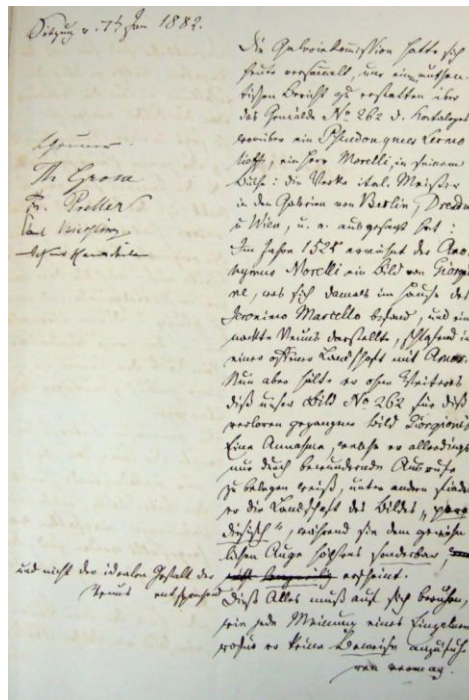 Sitzung v. 7t Jan 1882.
Grüner
Th. Grosse
Fr. Preller
Die Galeriekommission hatte sich
heute versammelt, um einen authen
tischen Bericht zu erstatten über
das Gemälde No 262 d. Kataloges
worüber ein Pseudonymus Lermo
lieff, ein Herr Morelli, in seinem
Buche: die Werke ital. Meister
in den Galerien von Berlin, Dresden
u Wien, u. a. ausgesagt hat:
Im Jahre 1525 erwähnt der Ano
nymus Morelli ein Bild von Giorgio
ne, was sich damals im Hause des
Jeronimo Marcello befand, und eine
nackte Venus darstellte, schlafend in
einer offenen Landschaft mit Amor.
Nun aber halte er ohne Weiteres
dieß unser Bild No 262 für dieß
verloren gegangene Bild Giorgione's
Eine Annahme, welche er allerdings
nur durch bewundernde Ausrufe
zu belegen weiß, unter andern findet
er die Landschaft des Bildes „para
diesisch", während sie dem gewöhn
lichen Auge höchstens sonderbar,
und nicht der idealen Gestalt der
Venus entsprechend
erscheint.
Dieß Alles muß auf sich beruhen,
wie jede Meinung eines Einzelnen
wofür er keine Beweise anzufüh
ren vermag.